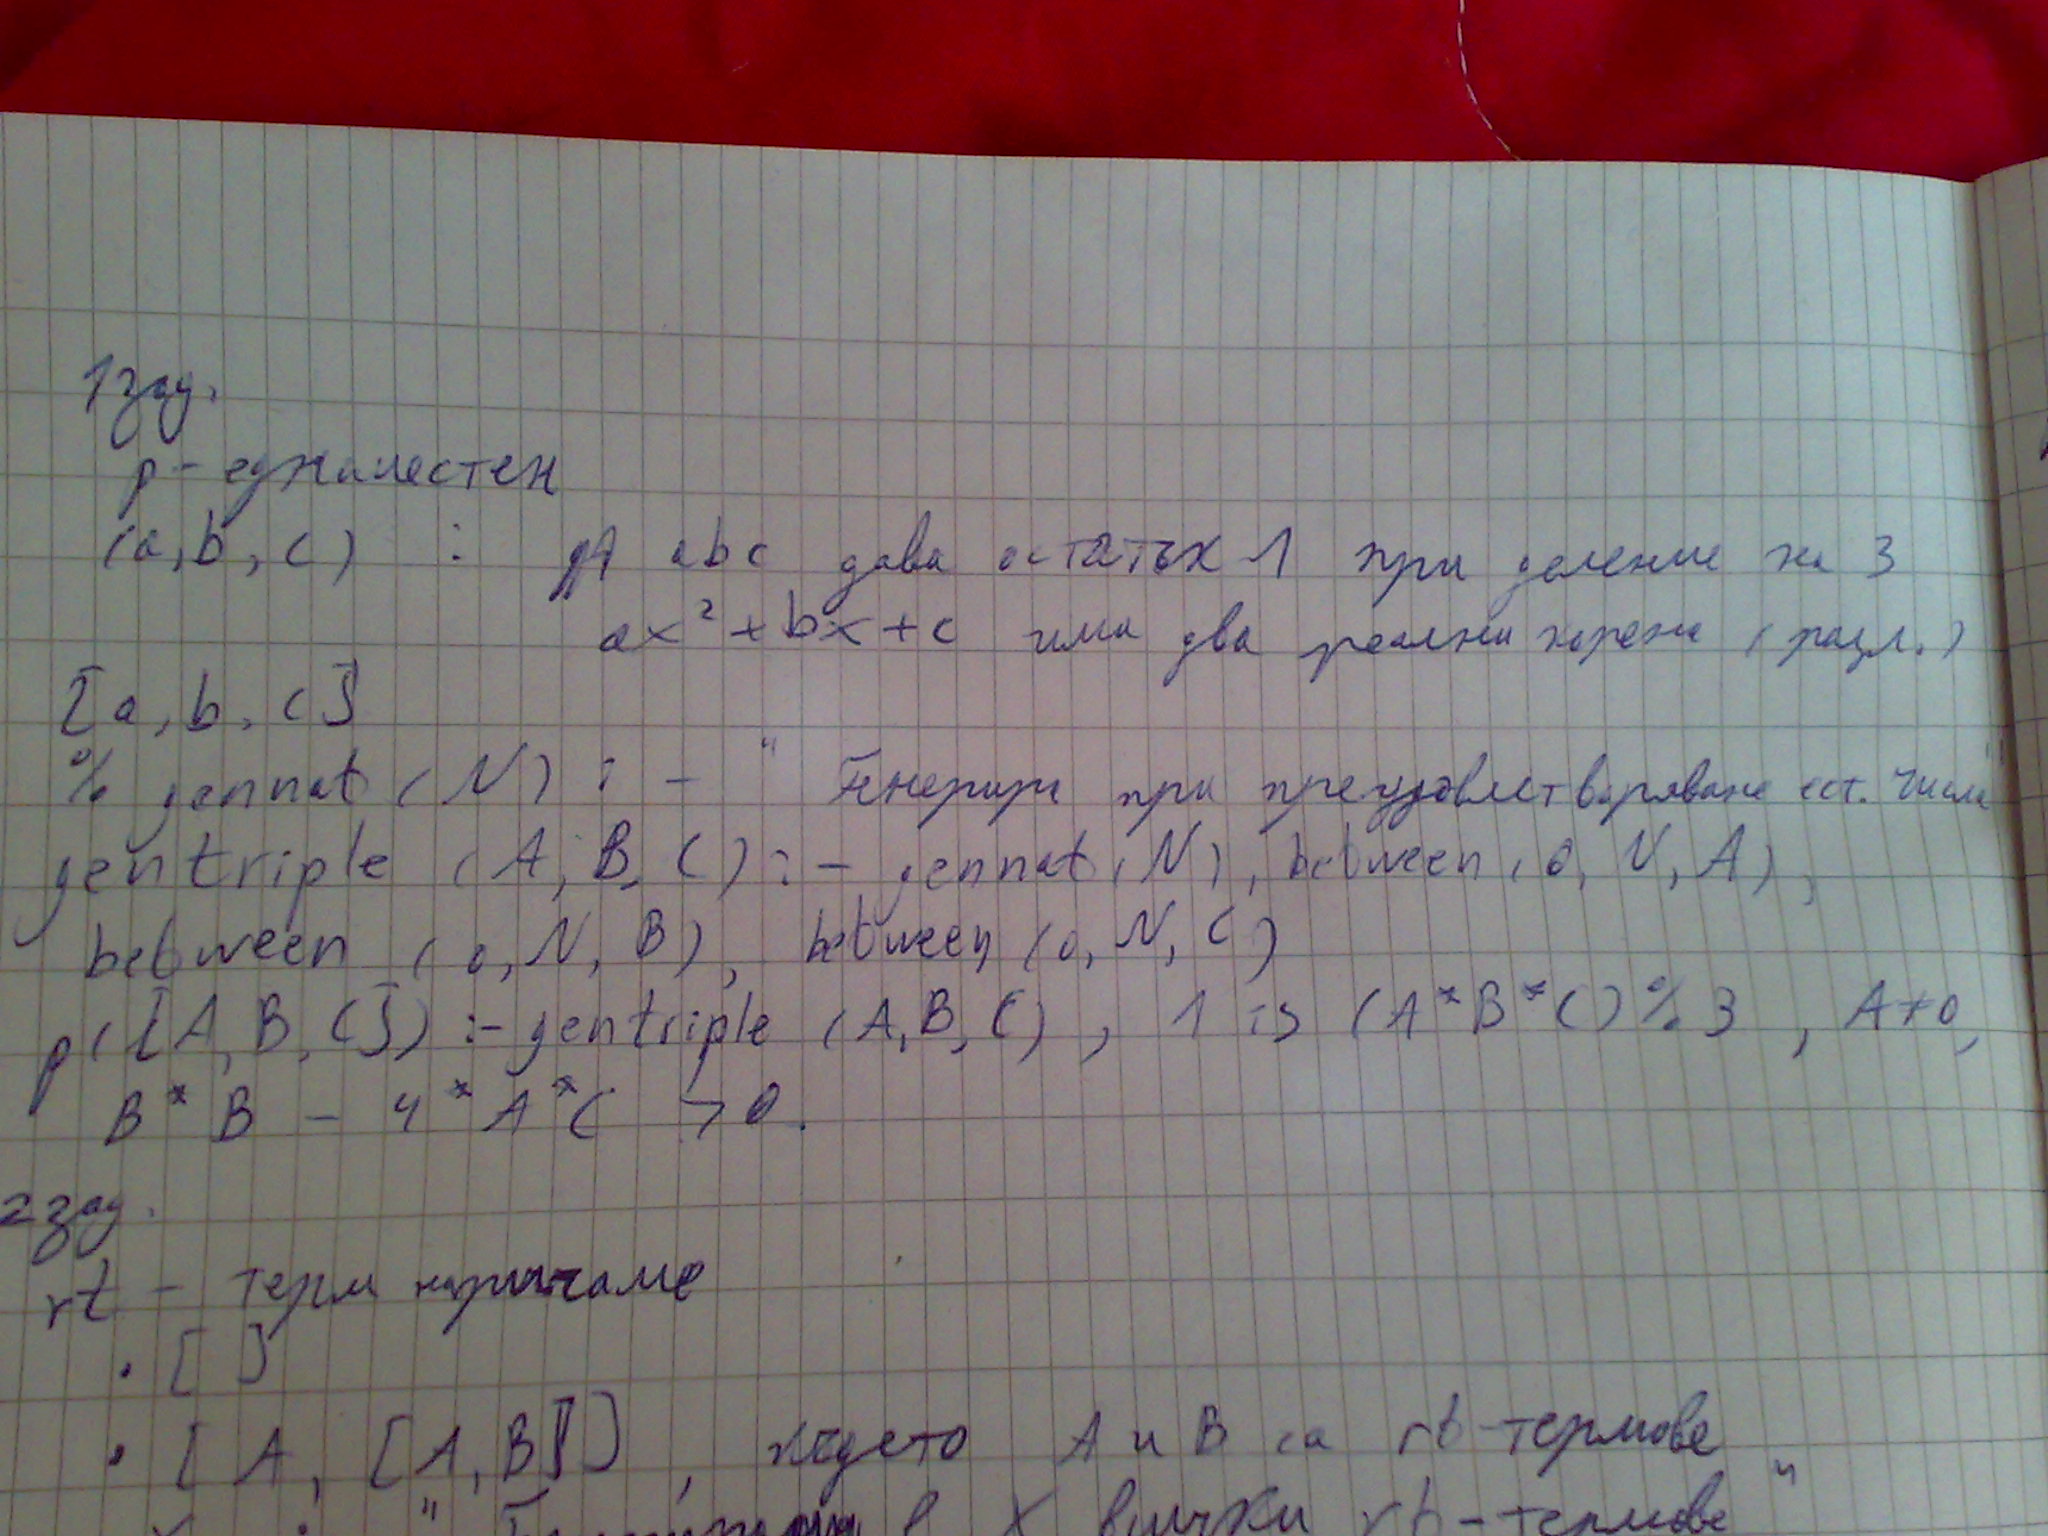 1 зад.
p - едноместен
(a, b, c) : abc дава остатък 1 при деление на 3
ax² + bx + c има два реални корена (разл.)
[a, b, c]
% gennat (N) : - " Генерира при преудовлетворяване ест. числа"
gentriple (A, B, C) : - gennat (N), between (0, N, A),
between (0, N, B), between (0, N, C)
p([A, B, C]) :- gentriple (A, B, C), 1 is (A*B*C) % 3, A≠0,
B*B - 4*A*C > 0.
2 зад.
rt - терм наричаме
• [ ]
• [A, [A, B]], където A и B са rt-термове
в X всички rt-термове"